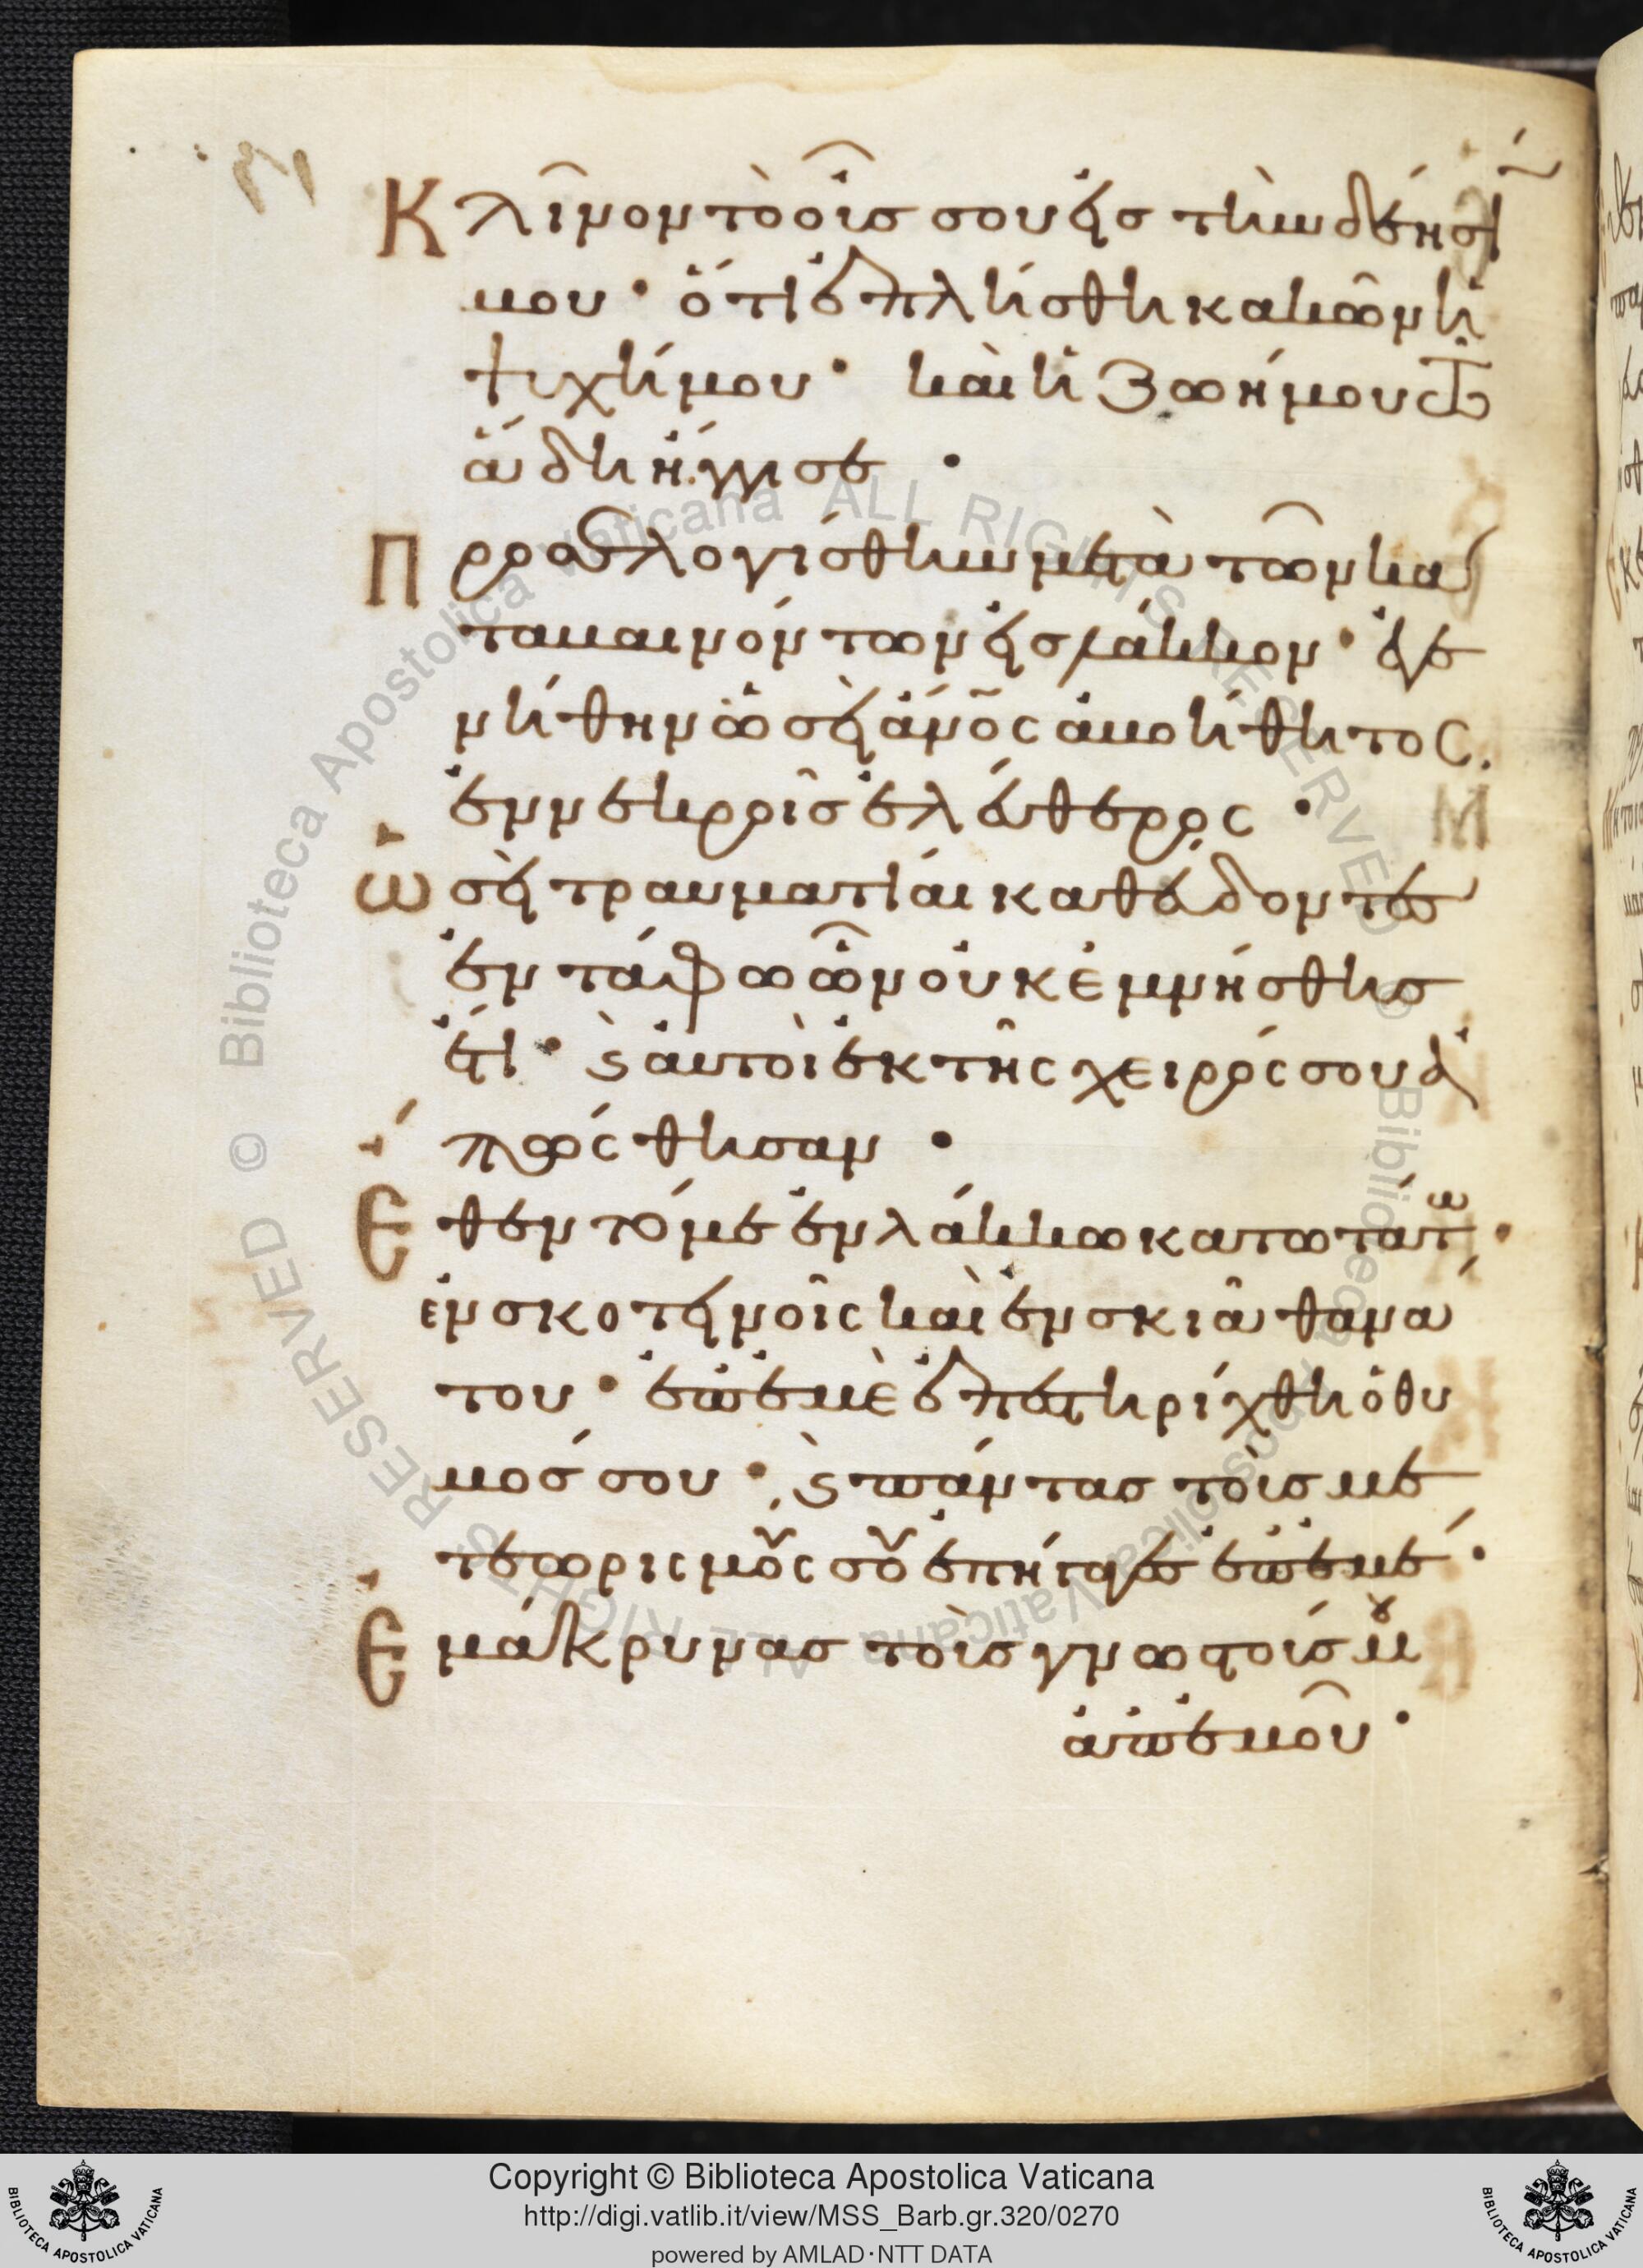 Κλῖνον τὸ οὖς σου εἰς τὴν δέησίν
μου· ὅτι ἐπλήσθη κακῶν ἡ
ψυχή μου· καὶ ἡ ζωή μου τῷ
ἅδη ἤγγισε·
Προσελογίσθην μετὰ τῶν κα
ταβαινόντων εἰς λάκκον· ἐγε
νήθην ὡσεὶ ἄνος ἀβοήθητος.
ἐν νεκροῖς ἐλεύθερος·
Ὡσεὶ τραυματίαι καθεύδοντες
ἐν τάφω ὧν οὐκ ἐμνήσθης
ἔτι· ϗ αὐτοὶ ἐκ τῆς χειρός σου ἀ
πώσθησαν·
Ἔθεντό με ἐν λάκκω κατωτάτω·
ἐν σκοτεινοῖς καὶ ἐν σκιᾶ θανά
του· ἐπ' ἐμὲ ἐπεστηρίχθη ὁ θυ
μός σου· ϗ πάντας τοὺς με
τεωρισμούς σου ἐπήγαγες ἐπ' ἐμέ·
Ἐμάκρυνας τοὺς γνωστούς μου
ἀπ' ἐμοῦ·
Biblioteca Apostolica Vaticana ALL RIGHTS RESERVED ©
Copyright © Biblioteca Apostolica Vaticana
http://digi.vatlib.it/view/MSS_Barb.gr.320/0270
powered by AMLAD·NTT DATA
BIBLIOTECA APOSTOLICA VATICANA
BIBLIOTECA APOSTOLICA VATICANA